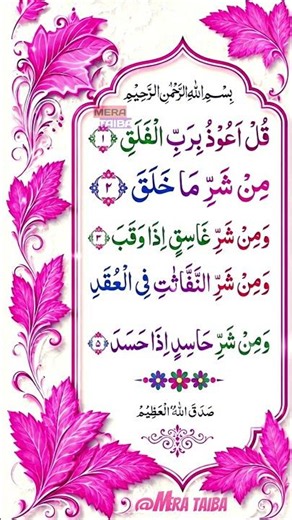 بِسْمِ اللهِ الرَّحْمٰنِ الرَّحِيْمِ
MERA
TAIBA
قُلْ اَعُوْذُ بِرَبِّ الْفَلَقِ ۝۱
مِنْ شَرِّ مَا خَلَقَ ۝۲
وَمِنْ شَرِّ غَاسِقٍ اِذَا وَقَبَ ۝۳
وَمِنْ شَرِّ النَّفّٰثٰتِ فِی الْعُقَدِ
وَمِنْ شَرِّ حَاسِدٍ اِذَا حَسَدَ ۝۵
صَدَقَ اللهُ الْعَظِيْمُ
@MERA TAIBA